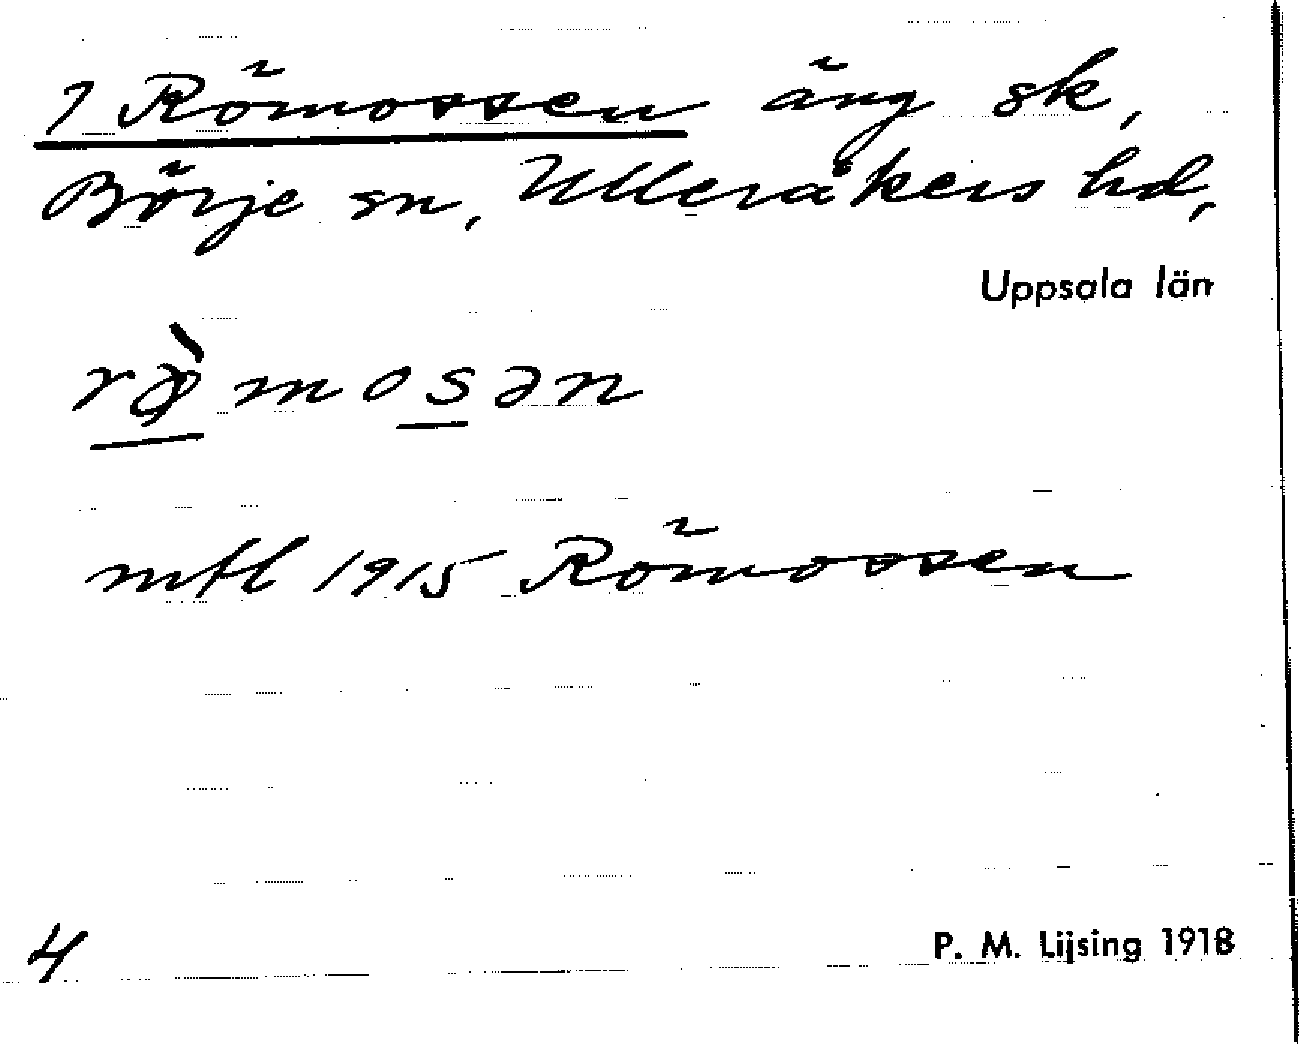 7 Römossen äng sk,
Börje sn, Ulleråkers hd,
Uppsala län
rø̀mosən
mtl 1915 Römossen
4
P. M. Lijsing 1918